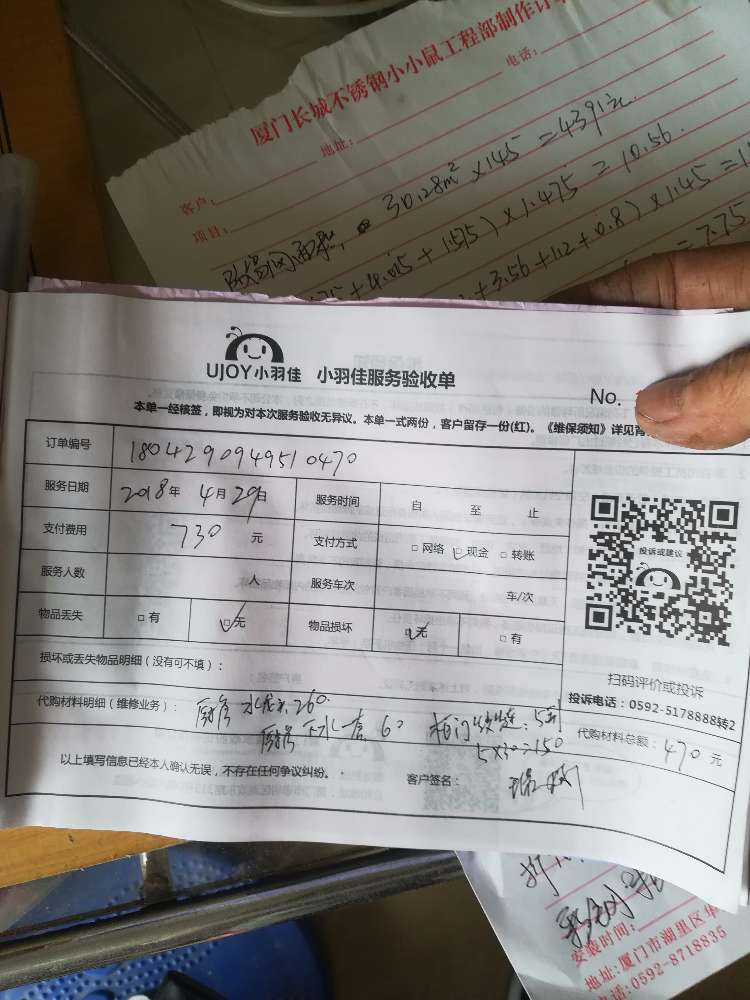 厦门长城不锈钢小小鼠工程部制作订
客户: 地址: 电话:
项目:
30.28m² ×145 = 4391元
4.015 + 1.575) × 1.475 = 10.56
+ 3.56 + 1.12 + 0.8) × 1.45 = 1
= 7.75
UJOY小羽佳 小羽佳服务验收单
No.
本单一经核签，即视为对本次服务验收无异议。本单一式两份，客户留存一份(红)。《维保须知》详见背
订单编号 1804290949510470
服务日期 2018年 4月29日 服务时间 自 至 止
支付费用 730 元 支付方式 □网络 ☑现金 □转账
服务人数 人 服务车次 车/次
物品丢失 □有 ☑无 物品损坏 ☑无 □有
损坏或丢失物品明细（没有可不填）：
投诉或建议
扫码评价或投诉
投诉电话：0592-5178888转2
代购材料明细（维修业务）： 厨房 水龙头260
厨房 下水一套 60 柜门铰链：5副
5×30=150
代购材料总额：470元
以上填写信息已经本人确认无误，不存在任何争议纠纷。 客户签名：
安装时间:
地址:厦门市湖里区
电话:0592-8718835